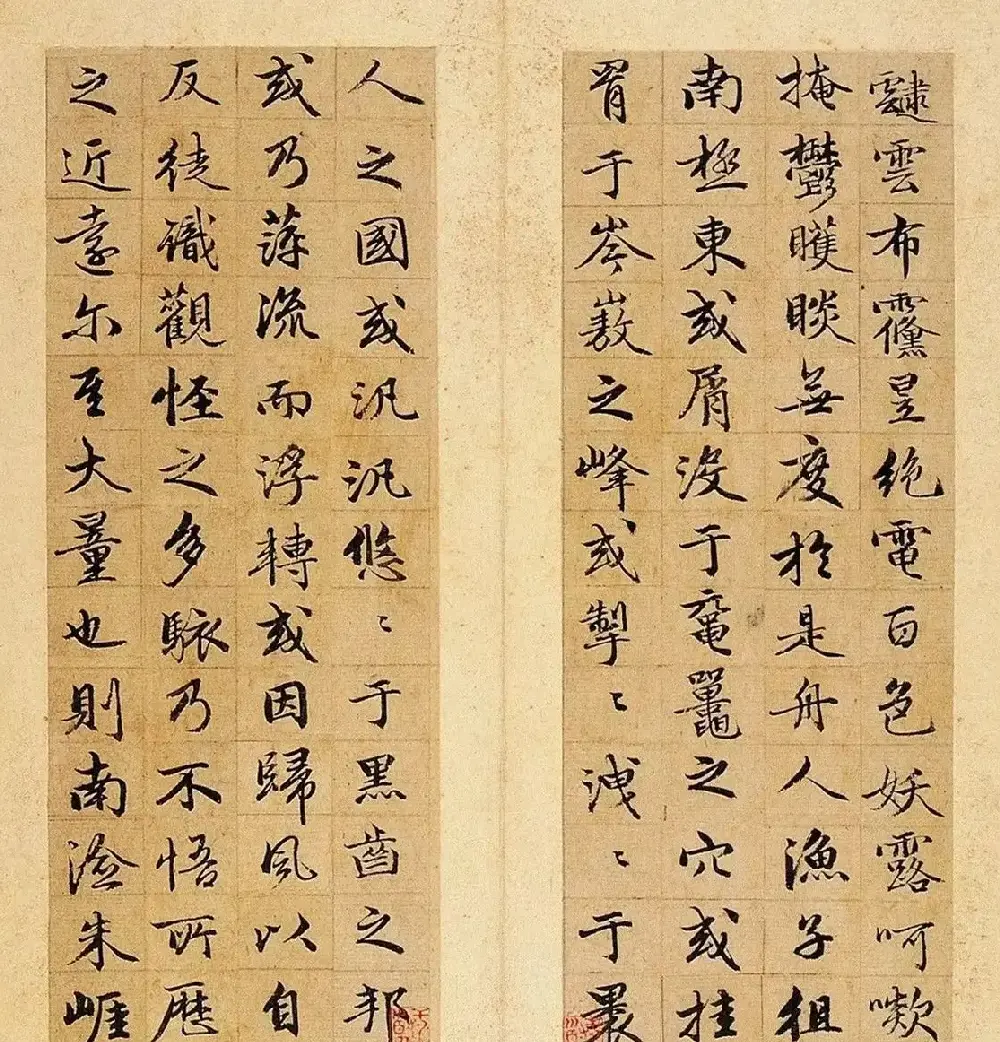 靆雲布昱絕電百色妖露呵嗽
掩鬱矆睒無度於是舟人漁子徂
南極東或屑沒于黿鼉之穴或挂
罥于岑嶅之峰或掣〻洩〻于
人之國或汎汎悠〻于黑齒之邦
或乃萍流而浮轉或因歸風以自
反徒識觀怪之多駭乃不悟所歷
之近遠尔至大量也則南澰朱崕